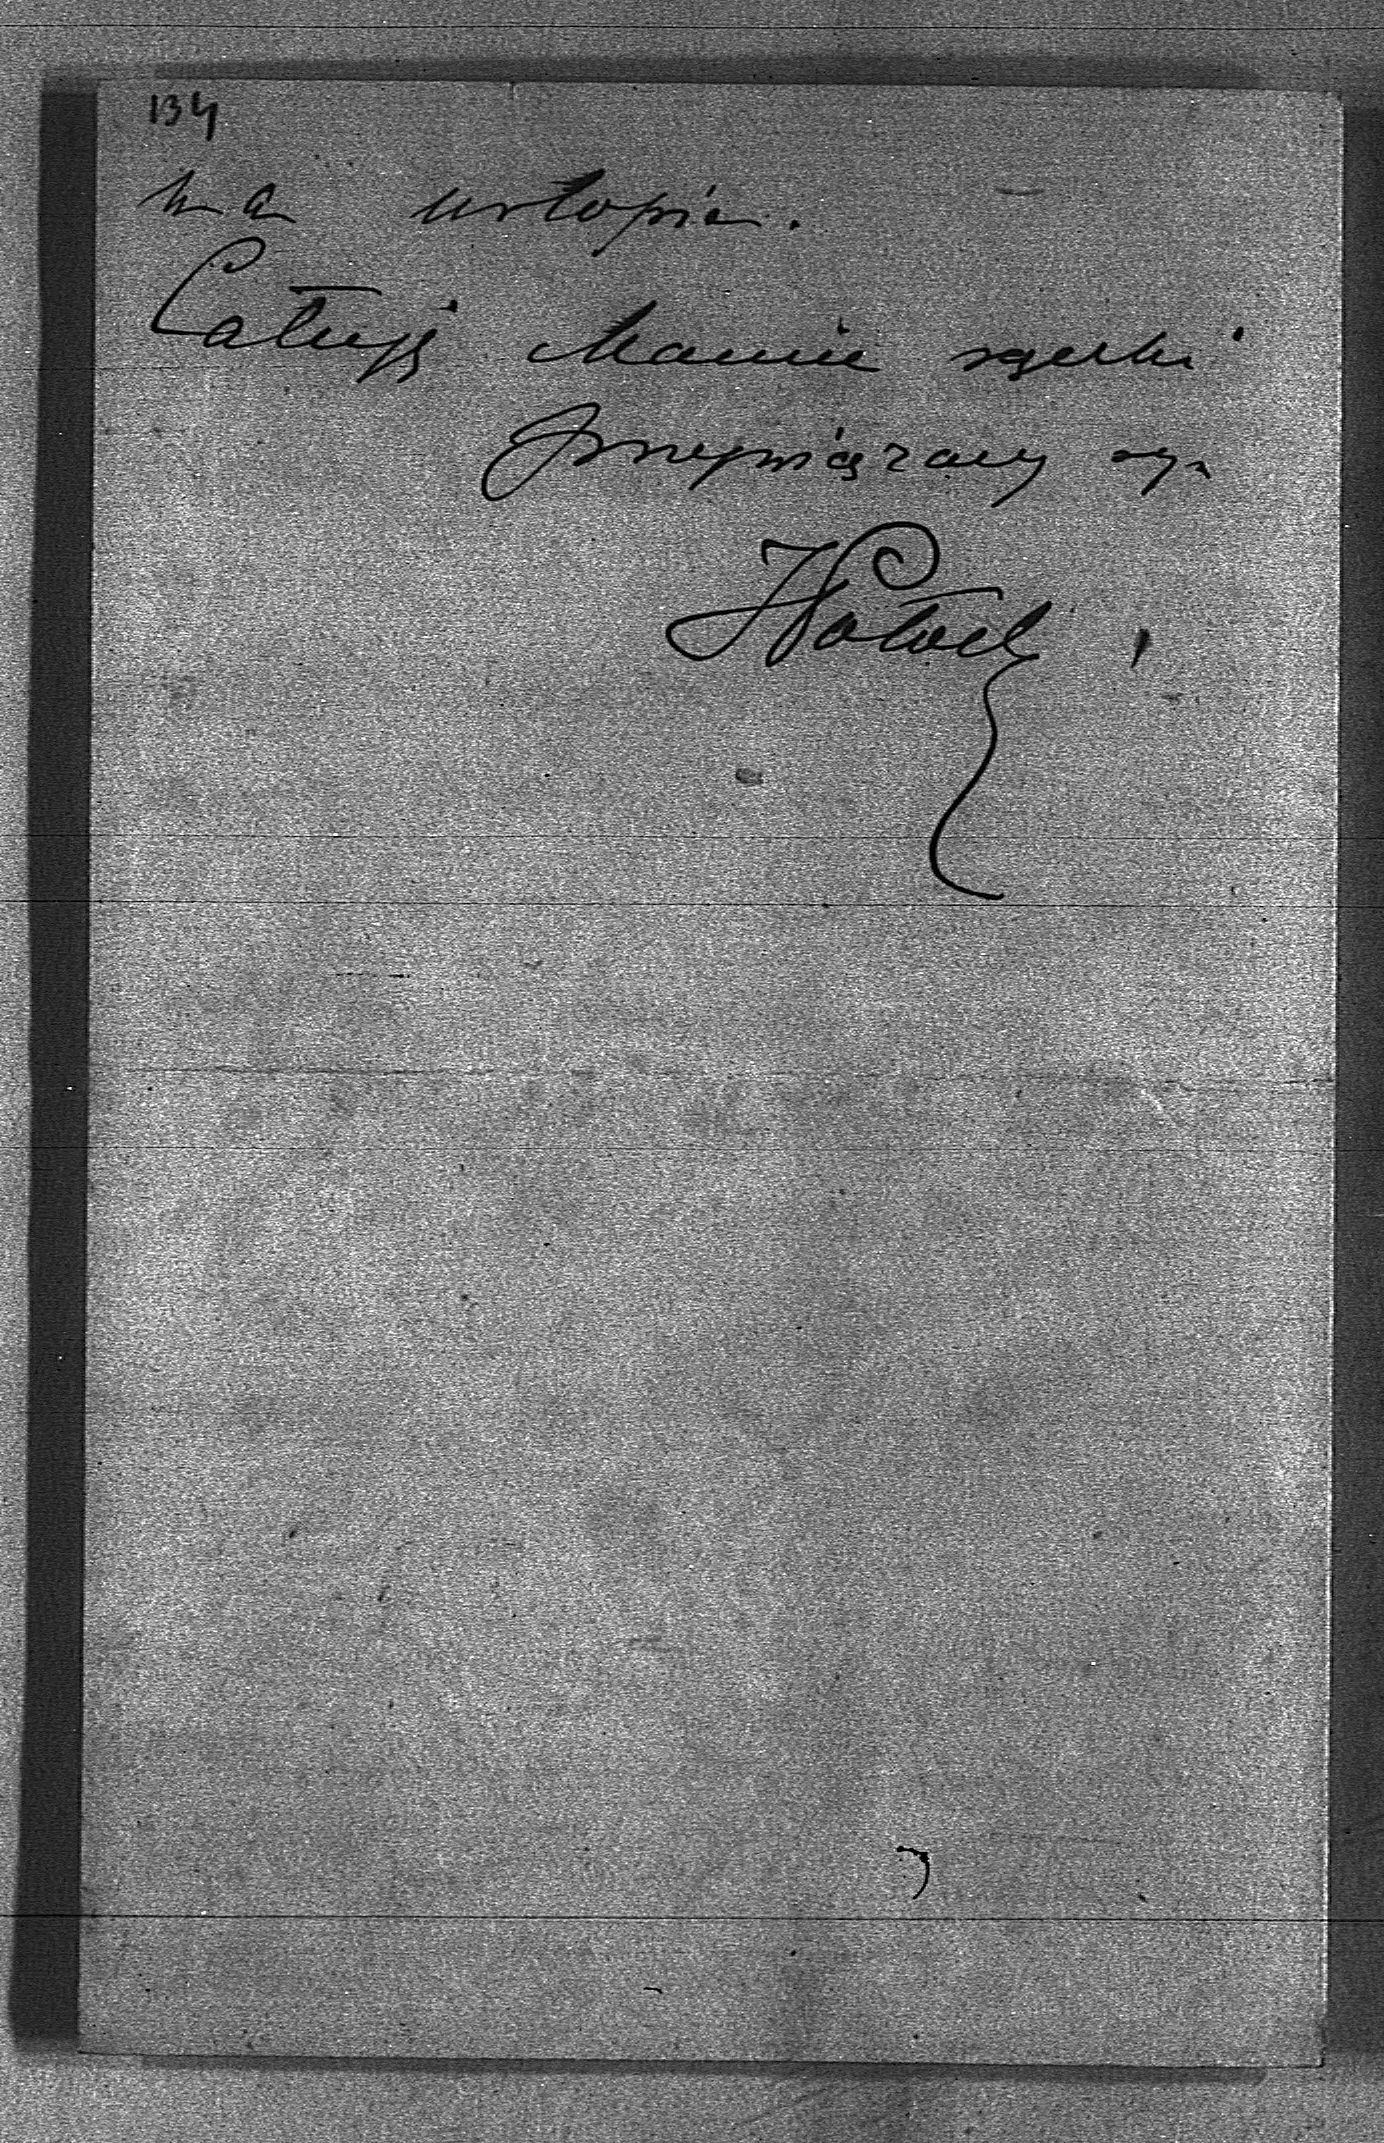 134
na urlopie.
Całuję Mamie rączki
przywiązany syn